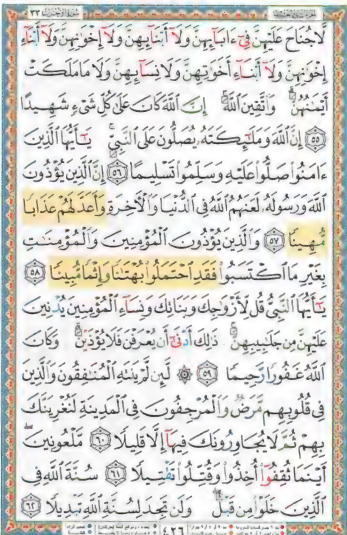 سُورَةُ الأَحْزَابِ ٣٣
لَّا جُنَاحَ عَلَيْهِنَّ فِي ءَابَآئِهِنَّ وَلَآ أَبْنَآئِهِنَّ وَلَآ إِخْوَٰنِهِنَّ وَلَآ أَبْنَآءِ
إِخْوَٰنِهِنَّ وَلَآ أَبْنَآءِ أَخَوَٰتِهِنَّ وَلَا نِسَآئِهِنَّ وَلَا مَا مَلَكَتْ
أَيْمَٰنُهُنَّ ۗ وَٱتَّقِينَ ٱللَّهَ ۚ إِنَّ ٱللَّهَ كَانَ عَلَىٰ كُلِّ شَىْءٍ شَهِيدًا
٥٥ إِنَّ ٱللَّهَ وَمَلَٰٓئِكَتَهُۥ يُصَلُّونَ عَلَى ٱلنَّبِىِّ ۚ يَٰٓأَيُّهَا ٱلَّذِينَ
ءَامَنُوا۟ صَلُّوا۟ عَلَيْهِ وَسَلِّمُوا۟ تَسْلِيمًا ٥٦ إِنَّ ٱلَّذِينَ يُؤْذُونَ
ٱللَّهَ وَرَسُولَهُۥ لَعَنَهُمُ ٱللَّهُ فِى ٱلدُّنْيَا وَٱلْءَاخِرَةِ وَأَعَدَّ لَهُمْ عَذَابًا
مُّهِينًا ٥٧ وَٱلَّذِينَ يُؤْذُونَ ٱلْمُؤْمِنِينَ وَٱلْمُؤْمِنَٰتِ
بِغَيْرِ مَا ٱكْتَسَبُوا۟ فَقَدِ ٱحْتَمَلُوا۟ بُهْتَٰنًا وَإِثْمًا مُّبِينًا ٥٨
يَٰٓأَيُّهَا ٱلنَّبِىُّ قُل لِّأَزْوَٰجِكَ وَبَنَاتِكَ وَنِسَآءِ ٱلْمُؤْمِنِينَ يُدْنِينَ
عَلَيْهِنَّ مِن جَلَٰبِيبِهِنَّ ۚ ذَٰلِكَ أَدْنَىٰٓ أَن يُعْرَفْنَ فَلَا يُؤْذَيْنَ ۗ وَكَانَ
ٱللَّهُ غَفُورًا رَّحِيمًا ٥٩ ۞ لَّئِن لَّمْ يَنتَهِ ٱلْمُنَٰفِقُونَ وَٱلَّذِينَ
فِى قُلُوبِهِم مَّرَضٌ وَٱلْمُرْجِفُونَ فِى ٱلْمَدِينَةِ لَنُغْرِيَنَّكَ
بِهِمْ ثُمَّ لَا يُجَاوِرُونَكَ فِيهَآ إِلَّا قَلِيلًا ٦٠ مَّلْعُونِينَ ۖ
أَيْنَمَا ثُقِفُوٓا۟ أُخِذُوا۟ وَقُتِّلُوا۟ تَقْتِيلًا ٦١ سُنَّةَ ٱللَّهِ فِى
ٱلَّذِينَ خَلَوْا۟ مِن قَبْلُ ۖ وَلَن تَجِدَ لِسُنَّةِ ٱللَّهِ تَبْدِيلًا ٦٢
٤٢٦